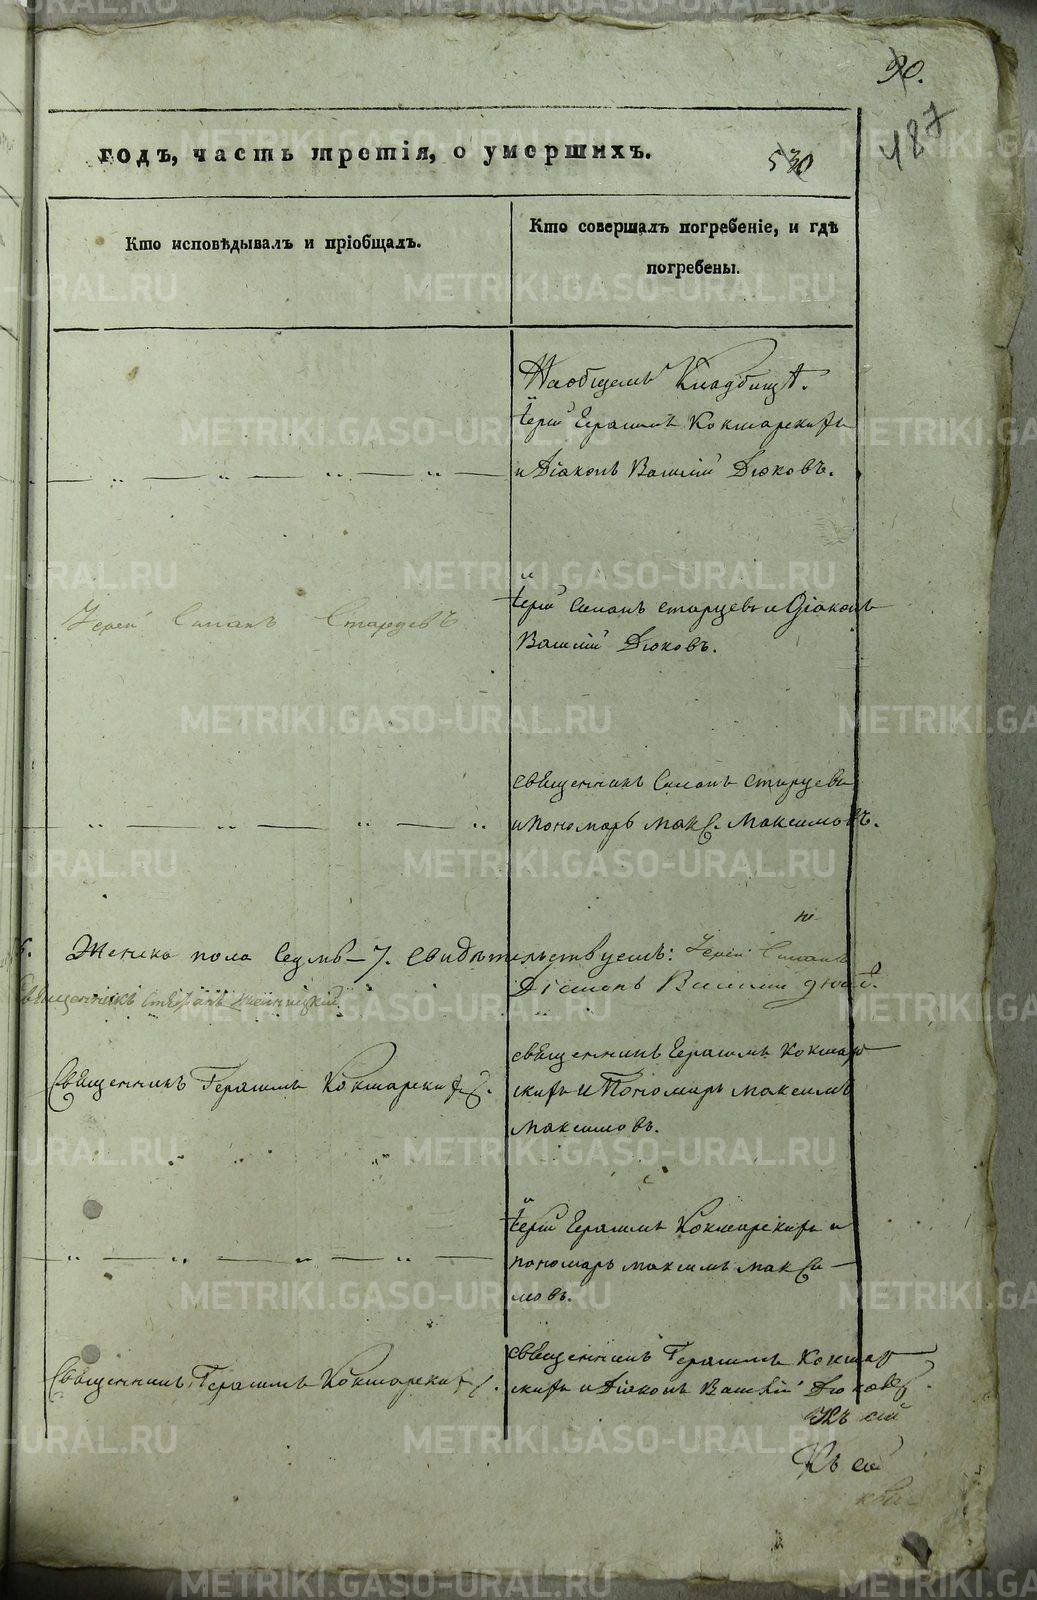 90.
187
годъ, часть третія, о умершихъ.
530
Кто исповѣдывалъ и пріобщалъ.
Кто совершалъ погребеніе, и гдѣ
погребены.
На общемъ Кладбищѣ.
Іерей Герасимъ Кокшарскихъ
и Діаконъ Василій Дюковъ.
Іерей Симонъ Старцевъ
Іерей Симонъ Старцевъ и Діаконъ
Василій Дюковъ.
священникъ Симонъ Старцевъ
и пономарь Макс. Максимовъ.
Женска пола Седмь – 7. свидѣтельствуемъ: Іерей Симонъ
Священникъ Стефанъ
Діаконъ Василій
Священникъ Герасимъ Кокшарскихъ.
священникъ Герасимъ Кокшар
скихъ и Пономарь Максимъ
Максимовъ.
Іерей Герасимъ Кокшарскихъ и
пономарь Максимъ Макси
мовъ.
Священникъ Герасимъ Кокшарскихъ.
священникъ Герасимъ Кокшар
скихъ и Діаконъ Василій Дюковъ.
Къ сей
Къ сей
METRIKI.GASO-URAL.RU